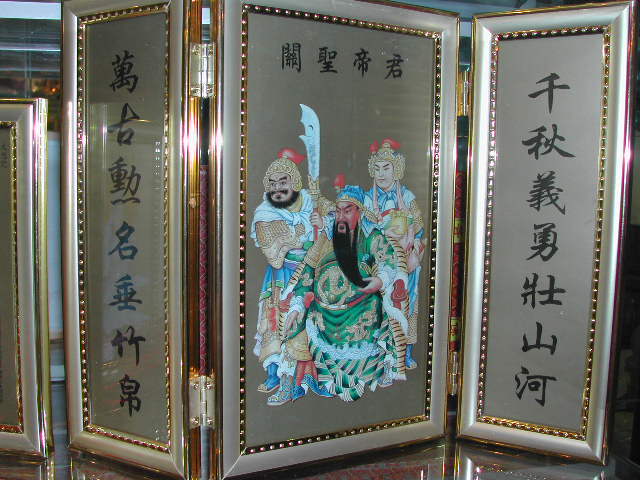 關聖帝君
千秋義勇壯山河
萬古勳名垂竹帛